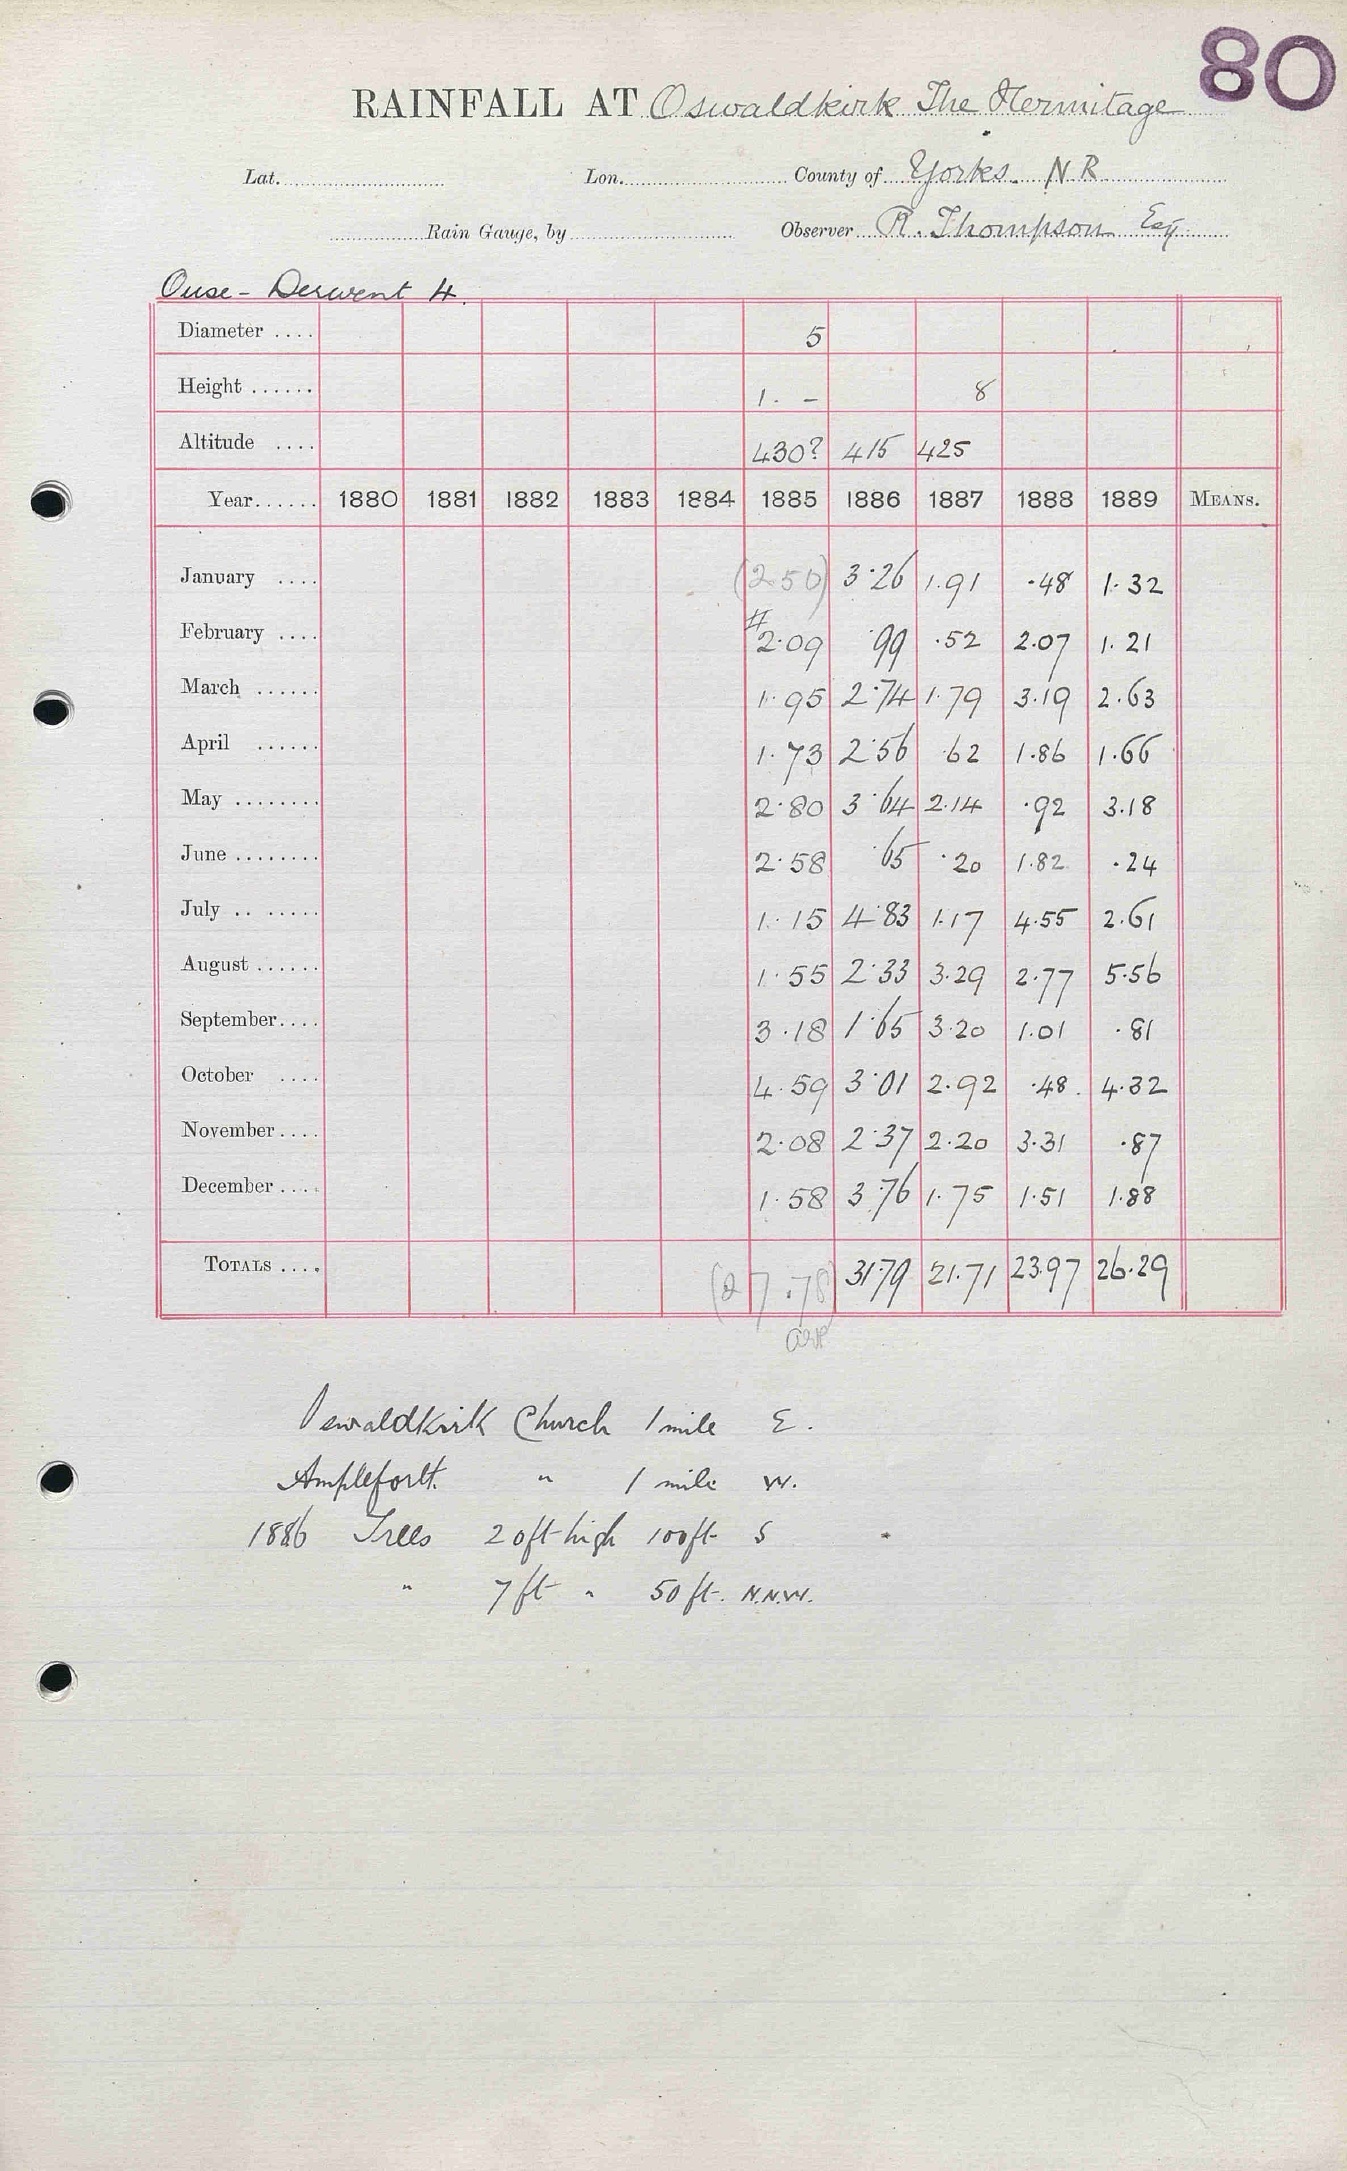 80
RAINFALL AT Oswaldkirk The Hermitage
Lat. Lon. County of Yorks. N R
Rain Gauge, by Observer R. Thompson Esq
Ouse - Derwent 4.
Diameter .... 5
Height ...... 1. - 8
Altitude .... 430? 415 425
Year...... 1880 1881 1882 1883 1884 1885 1886 1887 1888 1889 MEANS.
January .... (2.50) 3.26 1.91 .48 1.32
February .... #2.09 .99 .52 2.07 1.21
March ...... 1.95 2.74 1.79 3.19 2.63
April ...... 1.73 2.56 .62 1.86 1.66
May ........ 2.80 3.64 2.14 .92 3.18
June ........ 2.58 .65 .20 1.82 .24
July .. ..... 1.15 4.83 1.17 4.55 2.61
August ...... 1.55 2.33 3.29 2.77 5.56
September.... 3.18 1.65 3.20 1.01 .81
October .... 4.59 3.01 2.92 .48. 4.32
November.... 2.08 2.37 2.20 3.31 .87
December .... 1.58 3.76 1.75 1.51 1.88
TOTALS .... (27.78) 31.79 21.71 23.97 26.29
Oswaldkirk Church 1 mile E.
Ampleforth " 1 mile W.
1886 Trees 20ft high 100ft S
" 7 ft " 50 ft. N.N.W.